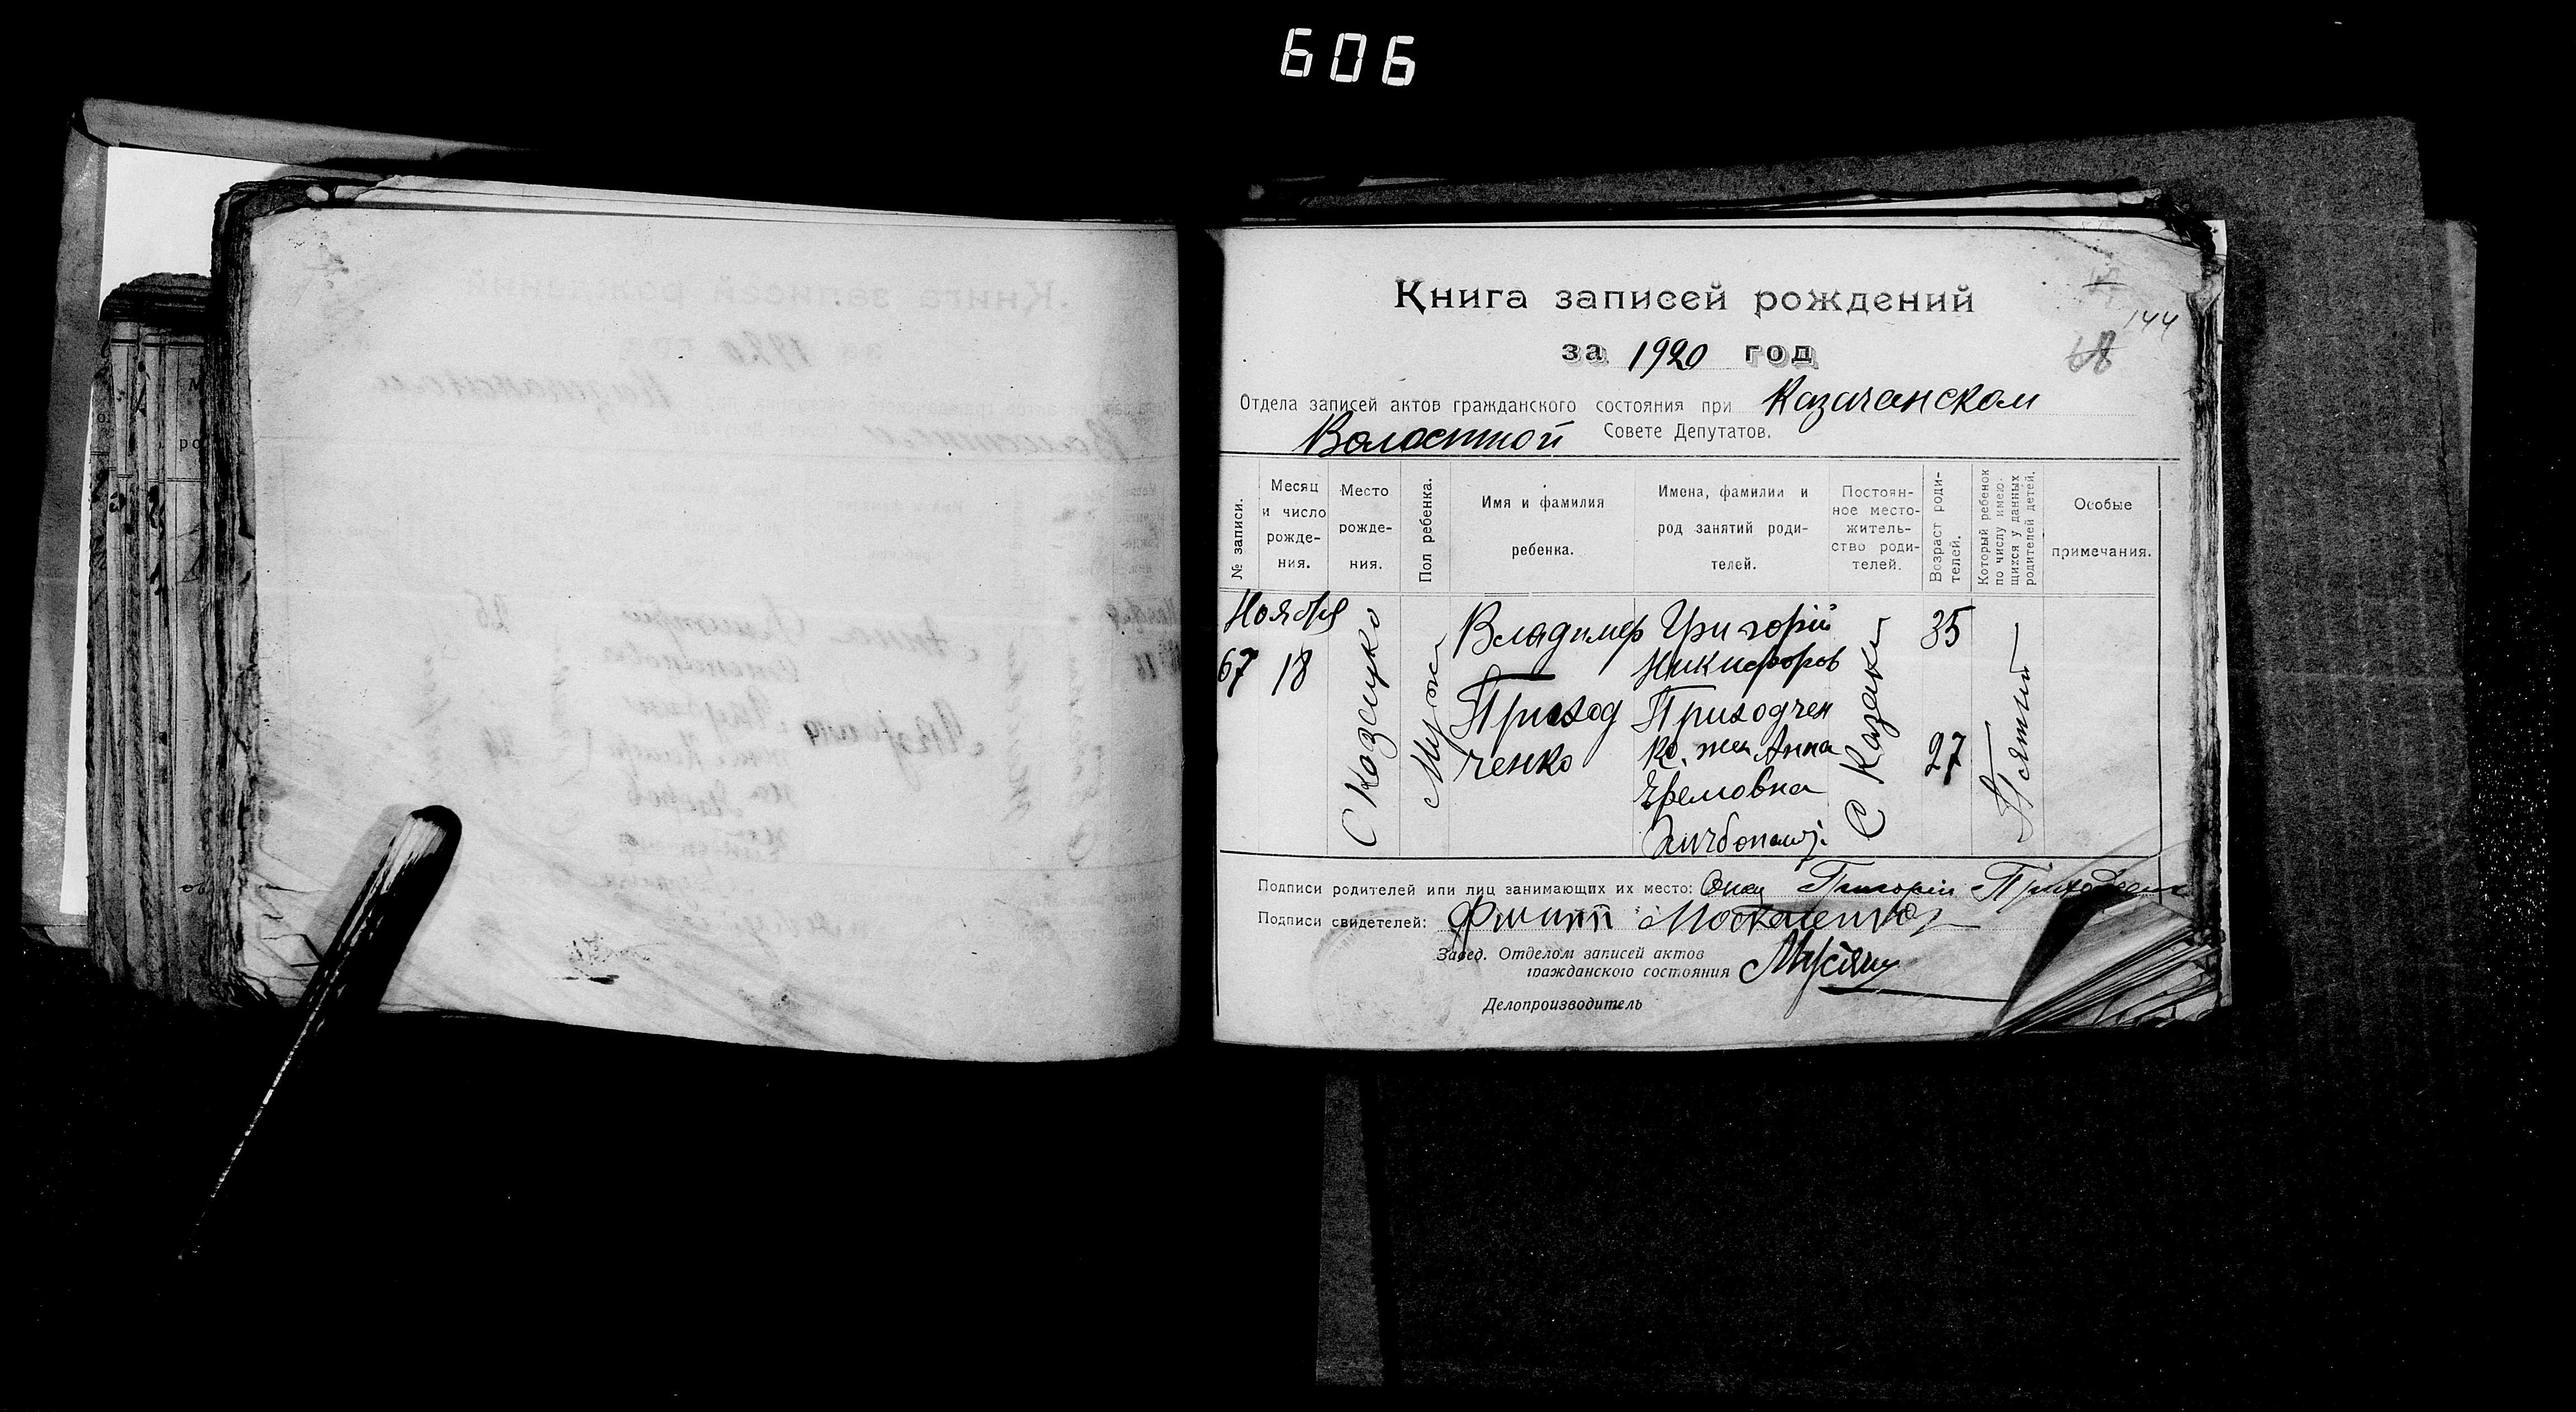 606
Книга записей рождений
144
за 1920 год
68
Отдела записей актов гражданского состояния при Казачанском
Волостной Совете Депутатов.
№ записи.
Месяц и число рожде-ния.
Место рожде-ния.
Пол ребенка.
Имя и фамилия ребенка.
Имена, фамилии и род занятий роди-телей.
Постоян-ное место-житель-ство роди-телей.
Возраст роди-телей.
Который ребенок по числу имею-щихся у данных родителей детей.
Особые примечания.
Ноября
67 18
С
Муж
Владимер
Приход
ченко
Григорій
Никифоров
Приходчен
ко. жен Анна
Ефремовна
С Казаки
35
27
Пятий
Подписи родителей или лиц занимающих их место: Григорій
Подписи свидетелей: Филипп Москаленко
Завед. Отделом записей актов
гражданского состояния
Делопроизводитель